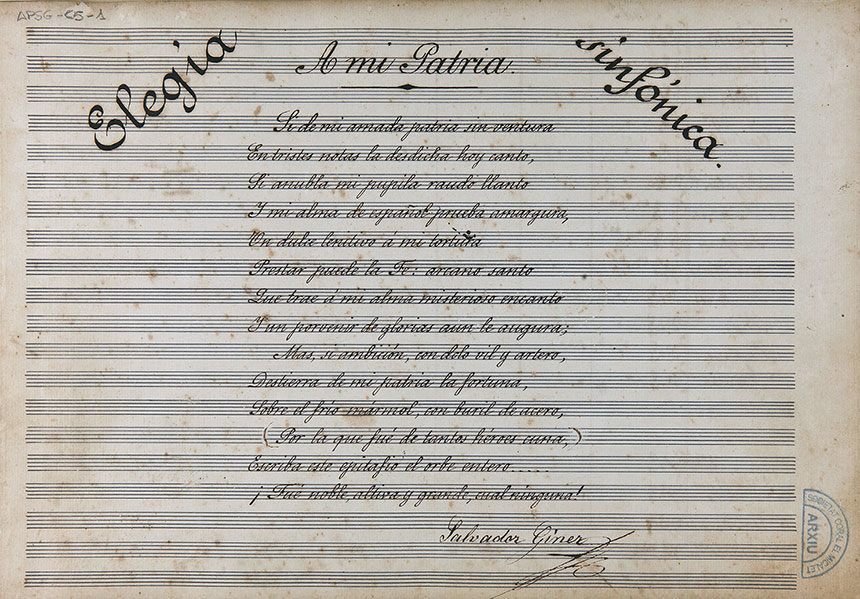 APSG-C5-1
Elegía
sinfónica.
A mi Patria.
Si de mi amada patria sin ventura
En tristes notas la desdicha hoy canto,
Si anubla mi pupila raudo llanto
Y mi alma de español prueba amargura,
Un dulce lenitivo á mi tortura
Prestar puede la Fe: arcano santo
Que trae á mi alma misterioso encanto
Y un porvenir de glorias aun le augura;
Mas, si ambición, con dolo vil y artero,
Destierra de mi patria la fortuna,
Sobre el frío mármol, con buril de acero,
(Por la que fué de tantos héroes cuna,)
Escriba este epitafio el orbe entero.....
¡Fué noble, altiva y grande, cual ninguna!
Salvador Giner
SOCIETAT CORAL EL MICALET
ARXIU